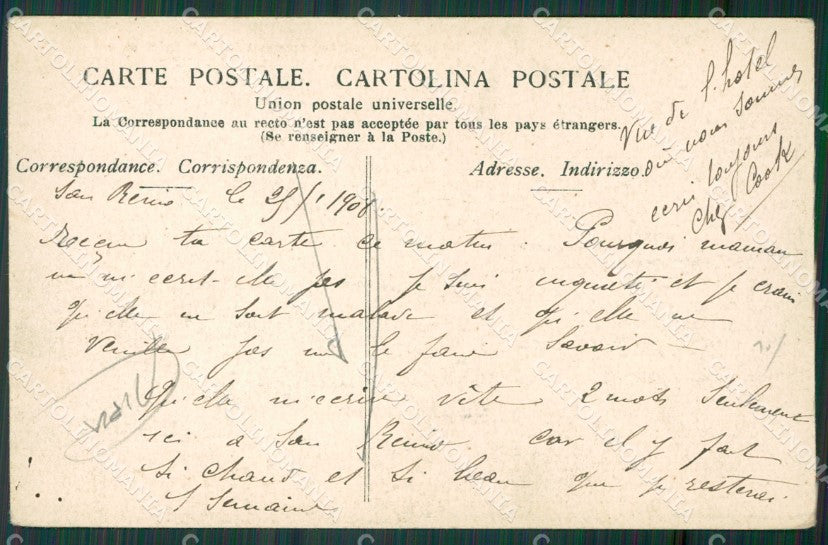 CARTE POSTALE. CARTOLINA POSTALE
Union postale universelle.
La Correspondance au recto n'est pas acceptée par tous les pays étrangers.
(Se renseigner à la Poste.)
Correspondance. Corrispondenza.
Adresse. Indirizzo.
Vue de l'hotel
où nous sommes
ecris toujours
chez Cook
San Remo le 25/1 1908.
Reçu ta carte ce matin. Pourquoi maman
ne m'ecrit-elle pas je suis inquiete et je crains
qu'elle ne soit malade et qu'elle ne
veuille pas me le faire savoir —
Qu'elle m'ecrive vite 2 mots seulement
ici a San Remo car il y fait
si chaud et si beau que je resterai
1 semaine
CARTOLINOMANIA